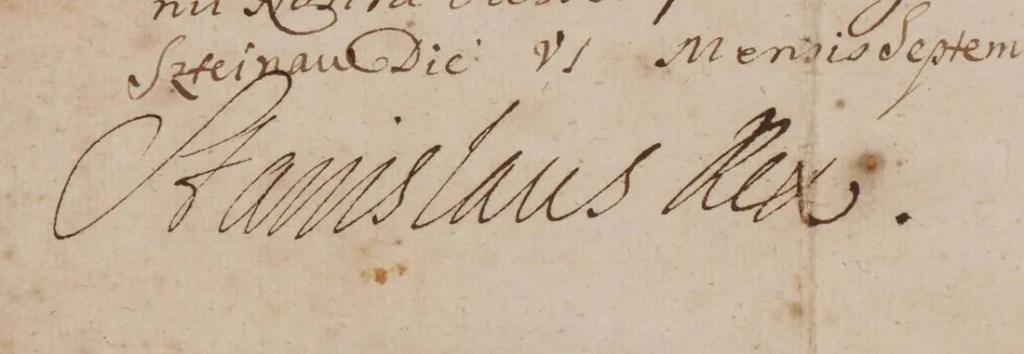 Szteinau Die VI Mensis Septem
Stanislaus Rex.